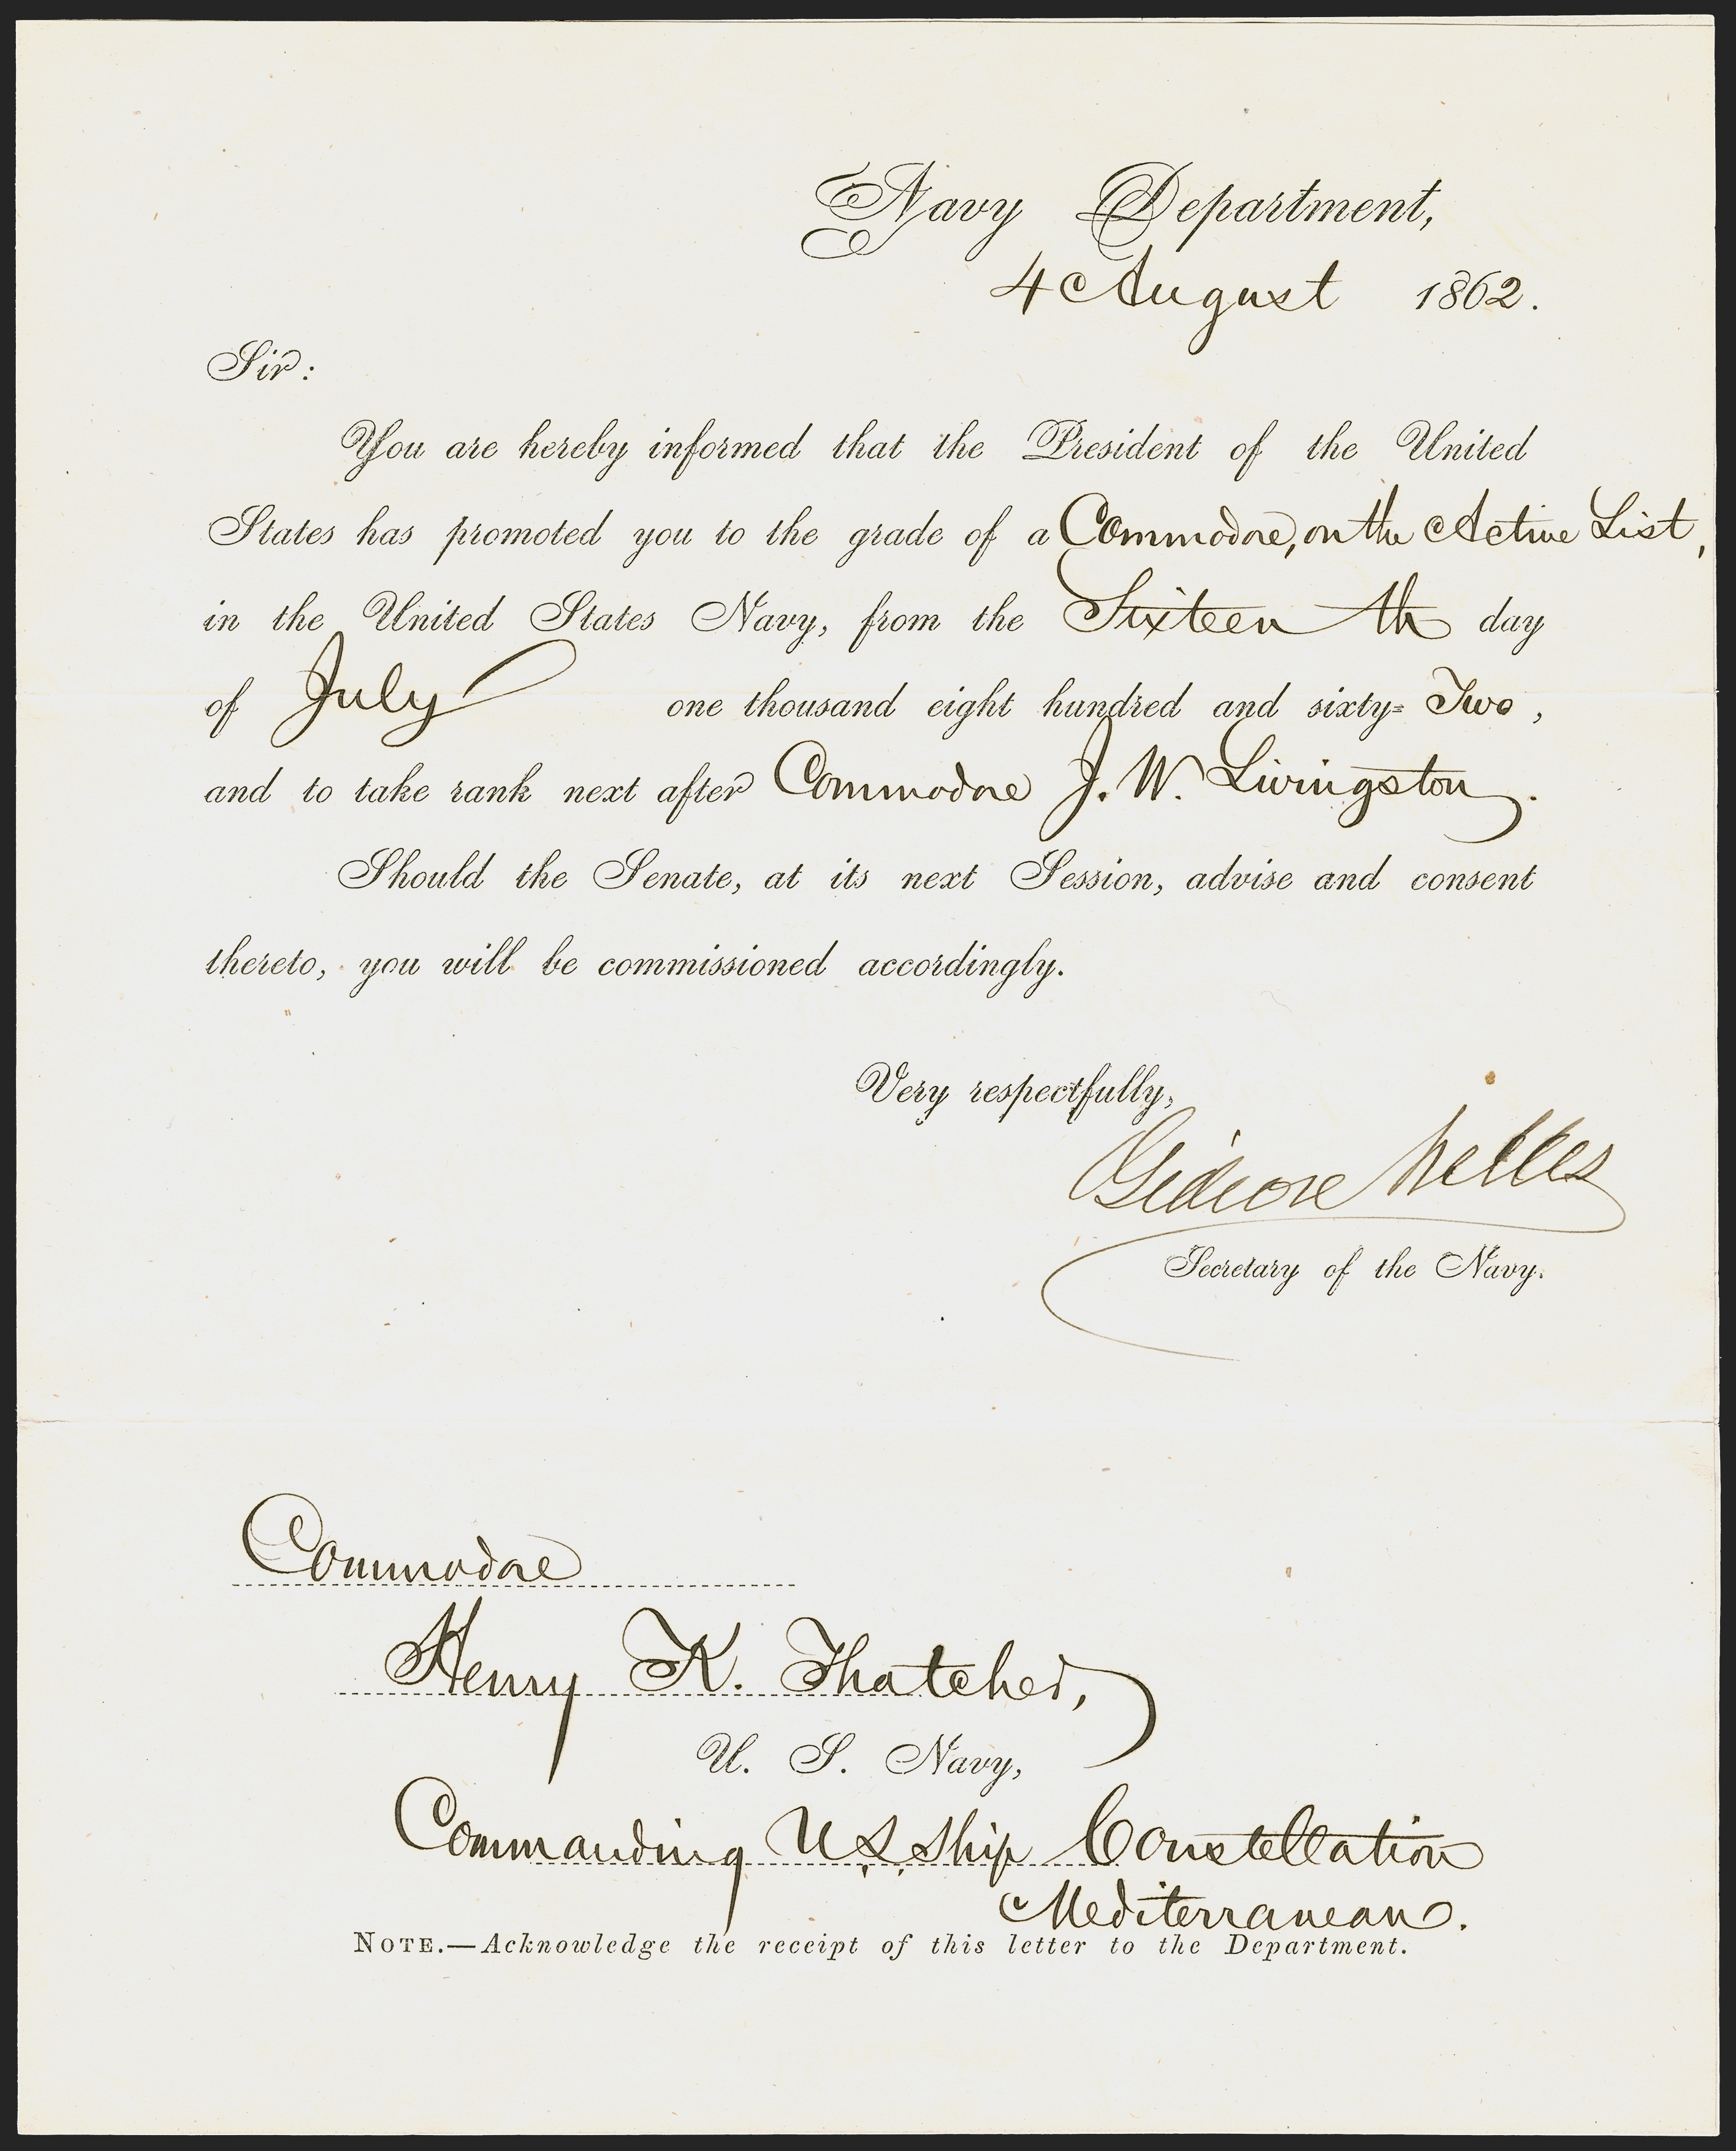 Navy Department,
4 August 1862.
Sir:
You are hereby informed that the President of the United
States has promoted you to the grade of a Commodore, on the Active List,
in the United States Navy, from the Sixteenth day
of July one thousand eight hundred and sixty=Two,
and to take rank next after Commodore J. W. Livingston.
Should the Senate, at its next Session, advise and consent
thereto, you will be commissioned accordingly.
Very respectfully,
Gideon Welles
Secretary of the Navy.
Commodore
Henry K. Thatcher,
U. S. Navy,
Commanding U.S. Ship Constellation
Mediterranean.
NOTE.—Acknowledge the receipt of this letter to the Department.